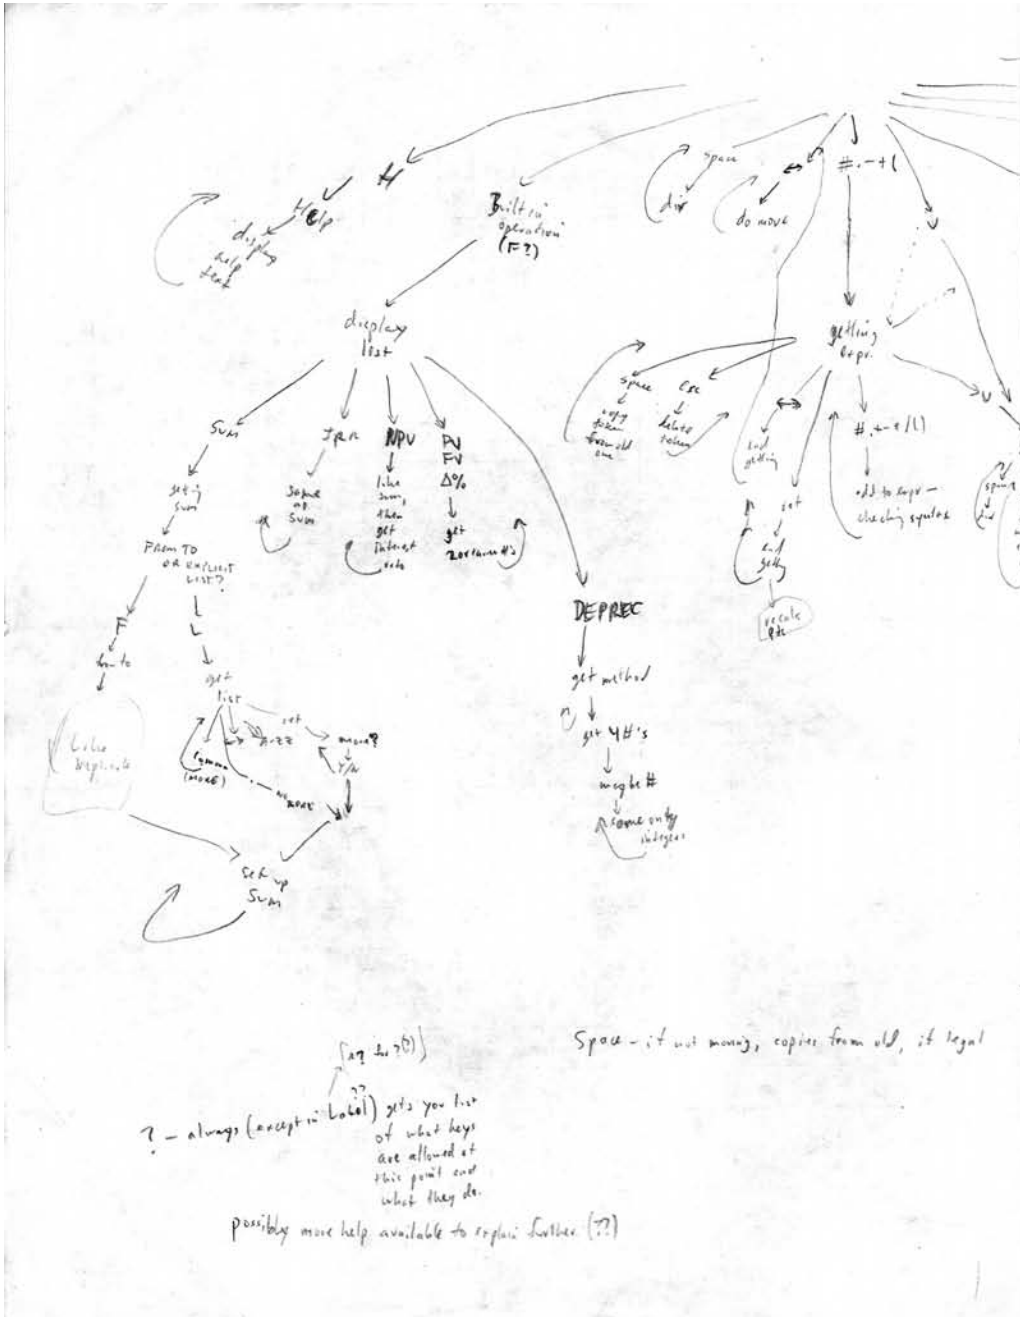 H
Help
display
help
text
Built in
operation
(F?)
space
dir
↔
do move
#.-+(
display
list
getting
expr.
space
copy
token
from old
one
esc
delete
token
↔
end
getting
ret
end
getting
recalc
etc
#.+-*/()
add to expr —
checking syntax
Sum
IRR
NPV
PV
FV
Δ%
getting
sum
same
as
sum
like
sum,
then
get
interest
rate
get
2 or 3 #'s
FROM TO
OR EXPLICIT
LIST?
F
from to
Like
replicate
get
list
comma
(MORE)
↔
A-ZZ
ret
more?
Y/N
no
MORE
set up
Sum
DEPREC
get method
get 4 #'s
maybe #
some only
integers
Space - if not moving, copies from old, if legal
? - always (except in Label) gets you list
of what keys
are allowed at
this point and
what they do.
possibly more help available to explain further (??)